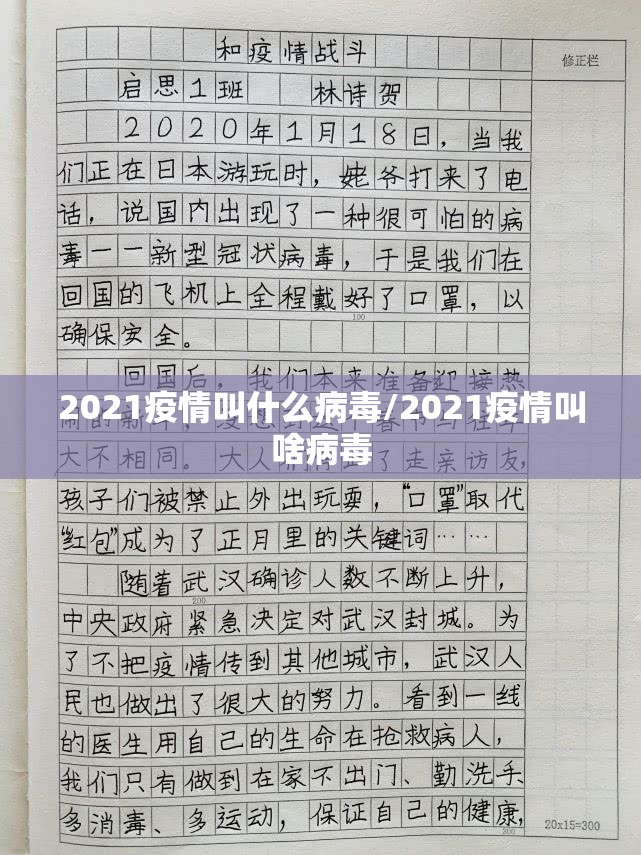 和疫情战斗
修正栏
启思1班 林诗贺
2020年1月18日，当我
们正在日本游玩时，姥爷打来了电
话，说国内出现了一种很可怕的病
毒一一新型冠状病毒，于是我们在
回国的飞机上全程戴好了口罩，以
100
确保安全。
回国后，我们本来准备迎接热
2021疫情叫什么病毒/2021疫情叫
啥病毒
闹的新年，
大不相同。大人们 了走亲访友，
孩子们被禁止外出玩耍，“口罩”取代
“红包”成为了正月里的关键词……
随着武汉确诊人数不断上升，
200
中央政府紧急决定对武汉封城。为
了不把疫情传到其他城市，武汉人
民也做出了很大的努力。看到一线
的医生用自己的生命在抢救病人，
我们只有做到在家不出门、勤洗手
多消毒、多运动，保证自己的健康，
300
20x15=300